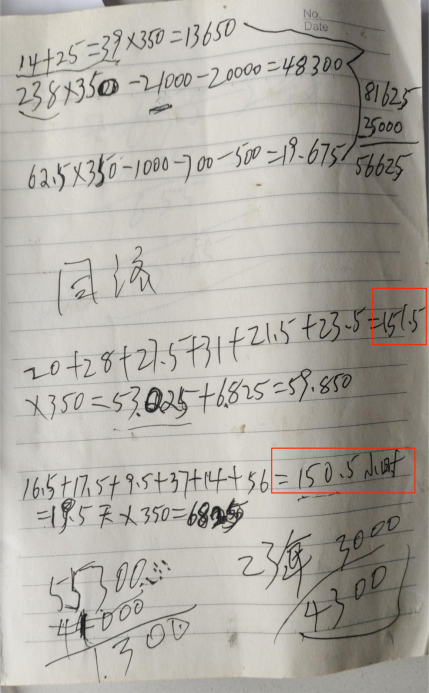 No.
Date
14+25=39×350=13650
238×350-21000-20000=48300
81625
25000
56625
62.5×350-1000-700-500=19.675
20+28+27.5+31+21.5+23.5=151.5
×350=53.025+6.825=59.850
16.5+17.5+9.5+37+14+56=150.5小时
=19.5天×350=6825
55300
44000
1.300
23年
3000
4300